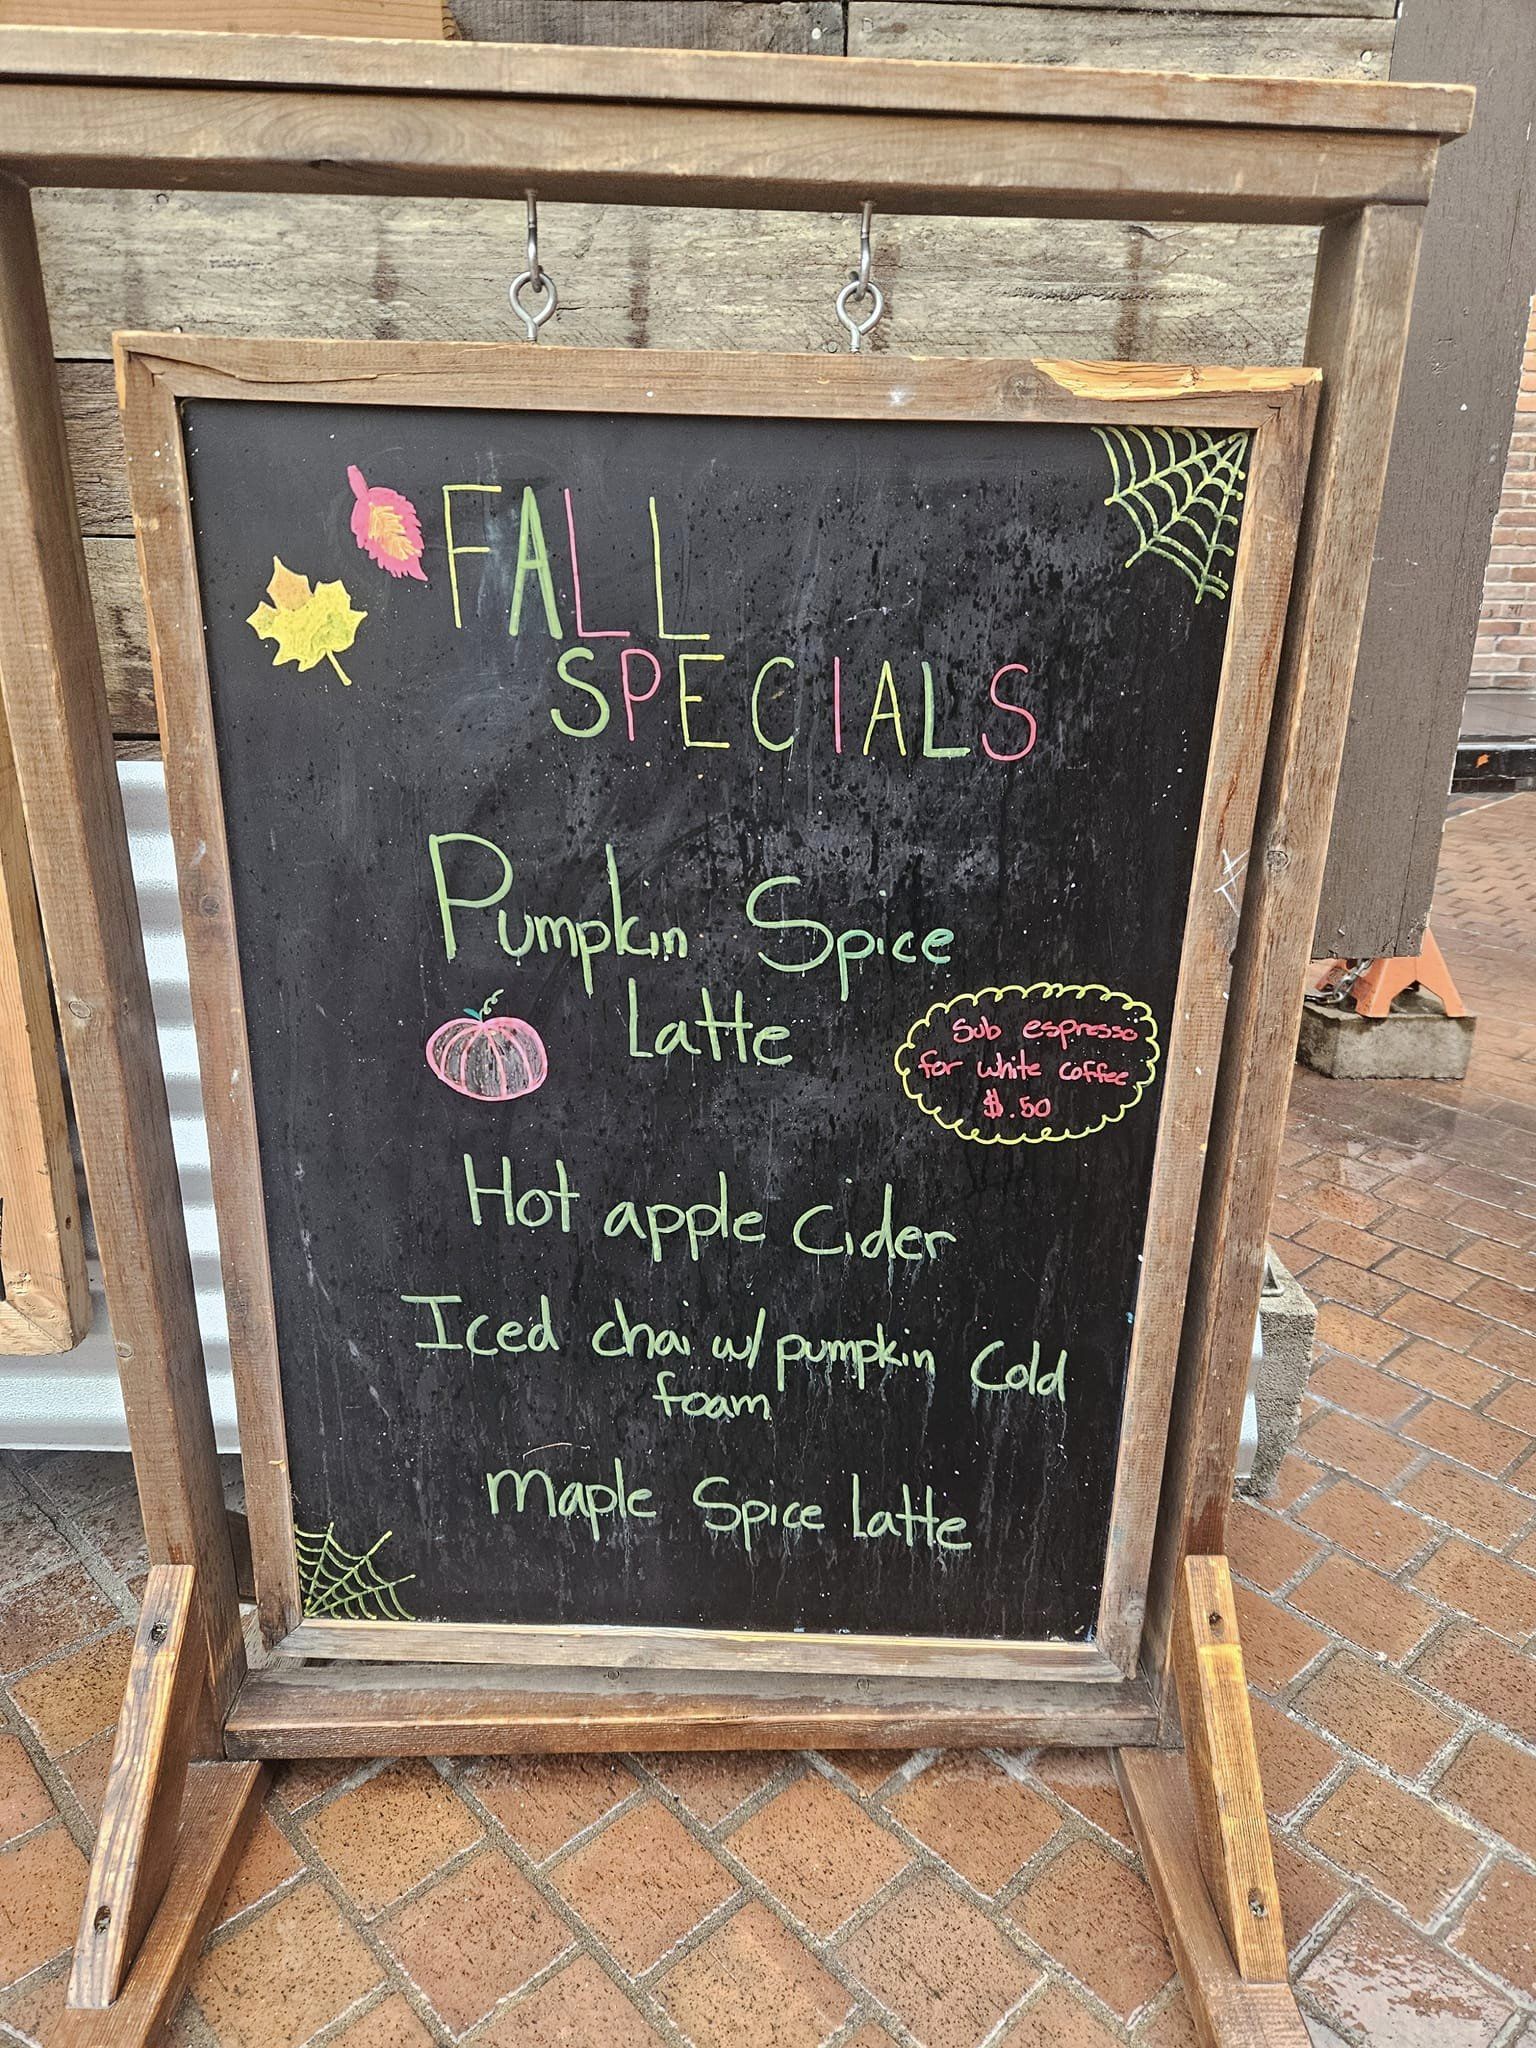 FALL
SPECIALS
Pumpkin Spice
Latte
Sub espresso
for white coffee
$.50
Hot apple Cider
Iced chai w/ pumpkin Cold
foam
Maple Spice Latte